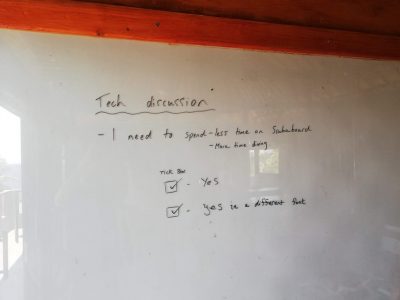 Tech discussion
- I need to spend less time on Scubaboard
- More time diving
Tick Box
☑ - Yes
☑ - yes in a different font